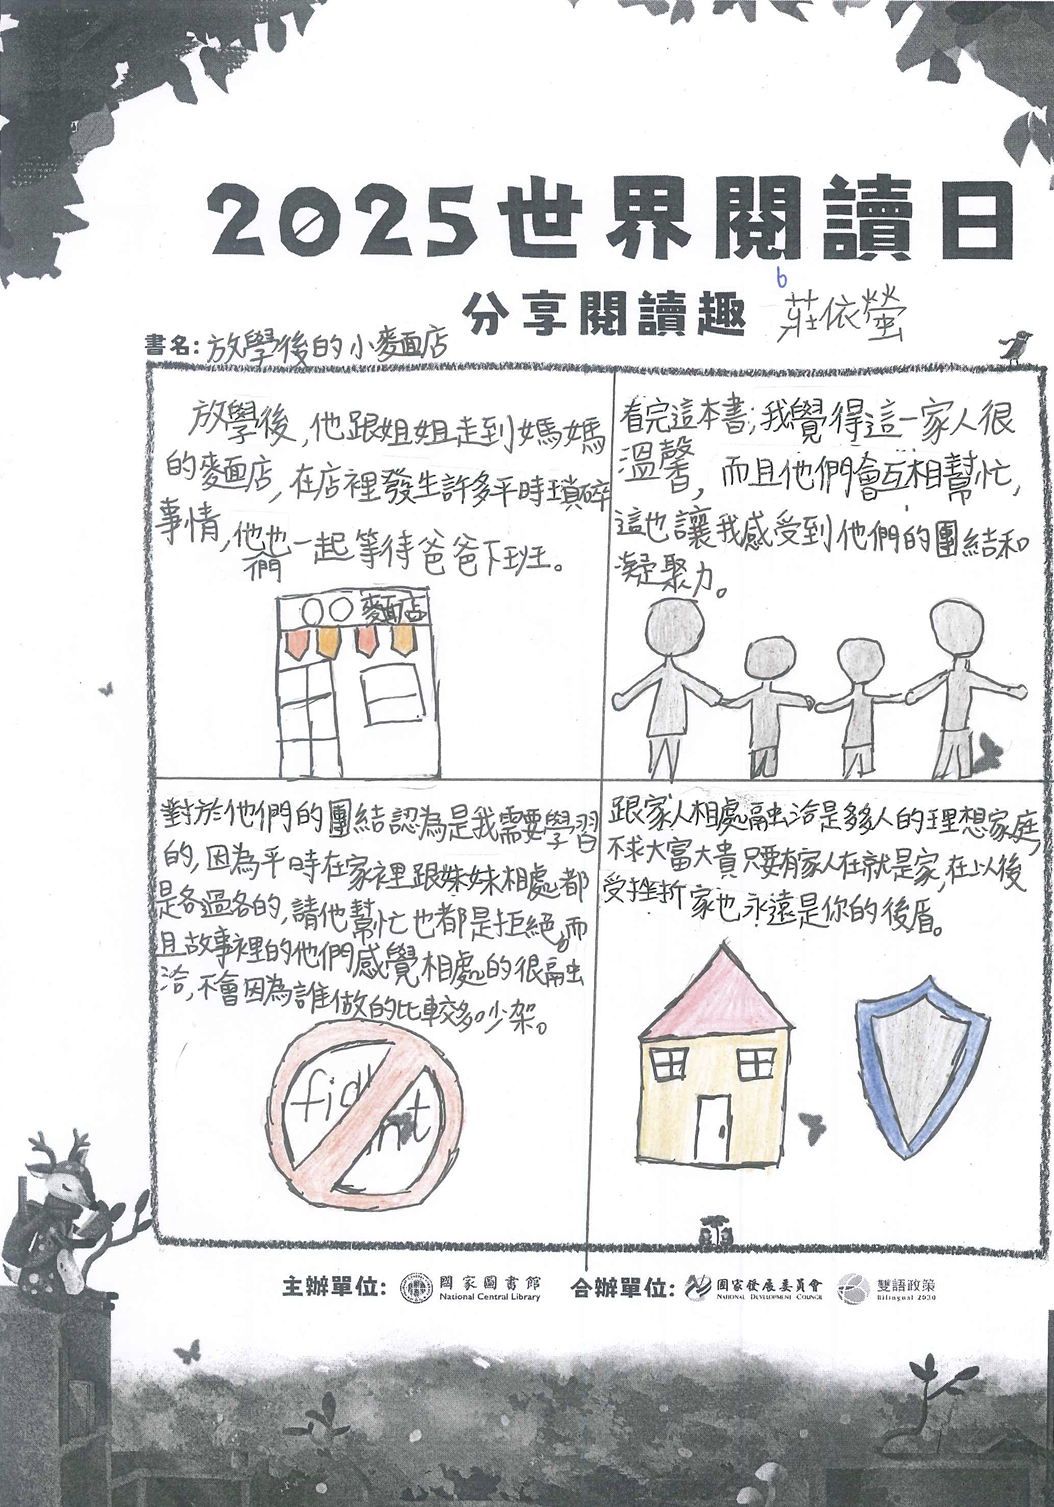 2025世界閱讀日
分享閱讀趣
6
莊依螢
書名:放學後的小麵店
放學後,他跟姐姐走到媽媽
的麵店,在店裡發生許多平時瑣碎
事情,他
們一起等待爸爸下班。
○○麵店
看完這本書;我覺得這一家人很
溫馨,而且他們會互相幫忙,
這也讓我感受到他們的團結和
凝聚力。
對於他們的團結認為是我需要學習
的,因為平時在家裡跟妹妹相處都
是各過各的,請他幫忙也都是拒絕,而
且故事裡的他們感覺相處的很融
洽,不會因為誰做的比較多吵架。
跟家人相處融洽是多人的理想家庭,
不求大富大貴只要有家人在就是家,在以後
受挫折家也永遠是你的後盾。
主辦單位:
國家圖書館
National Central Library
合辦單位:
國家發展委員會
National Development Council
雙語政策
Bilingual 2030